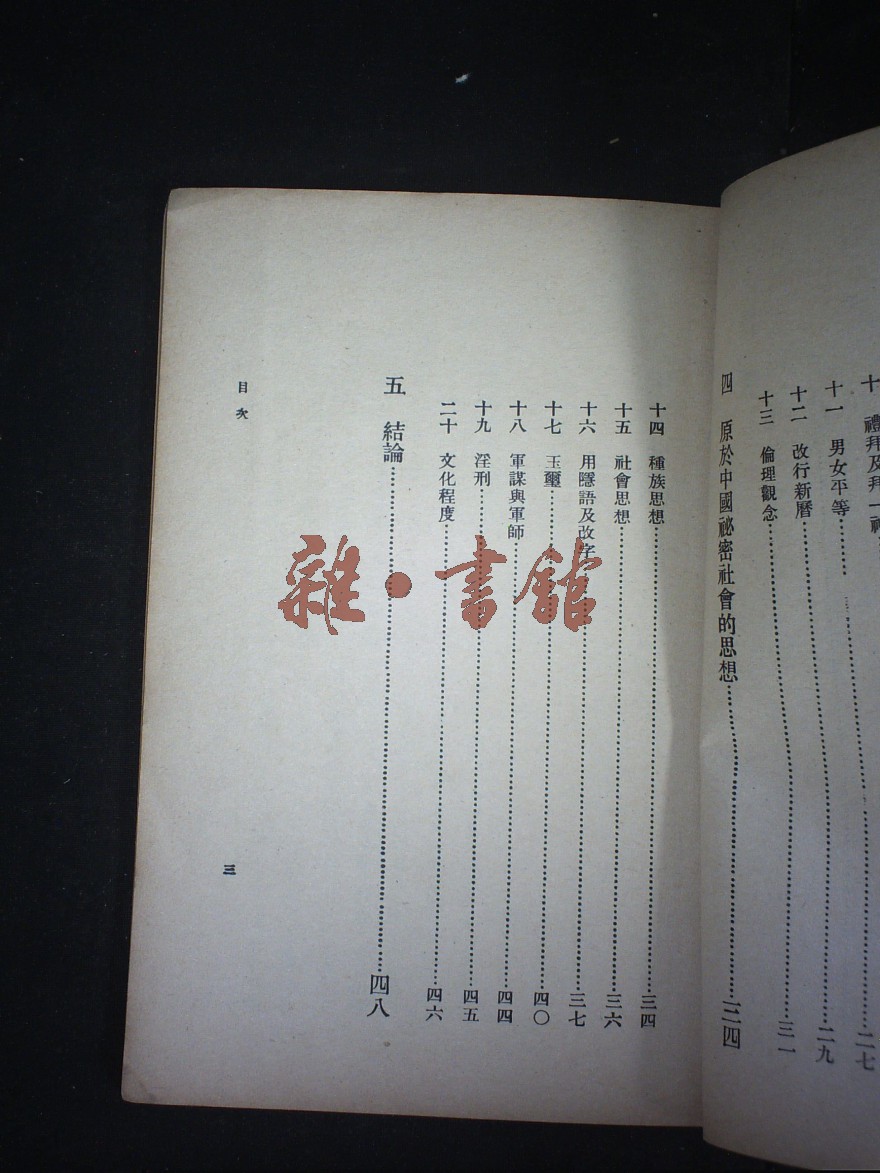 十 禮拜及拜一神 二七
十一 男女平等 二九
十二 改行新曆
十三 倫理觀念 三一
四 原於中國祕密社會的思想 三四
十四 種族思想 三四
十五 社會思想 三六
十六 用隱語及改字 三七
十七 玉璽 四〇
十八 軍謀與軍師 四四
十九 淫刑 四五
二十 文化程度 四六
五 結論 四八
目次
三
雜·書館